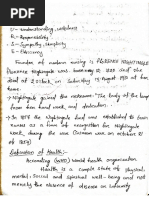 U - Understanding, usefulness
R - Responsibility
S - Sympathy, simplicity
E - Efficiency
Founder of modern nursing is FLORENCE NIGHTINGALE
Florence Nightingale was born may 12, 1820 and she
died at 2:00 a.m, on Saturday, August 1910 at her
home.
Nightingale joined the The body of the lamp
from her hard work, and dedication.
In 1855 the Nightingale fund was established to fund
nurses as a form of recognition for Nightingale
work, during the war (Crimean war on 29
of 1854)
Definition of Health:-
According (WHO) World health organization
Health is a complete state of physical,
mental, Social and Spiritual well being and not
merely the absence of disease or infirmity